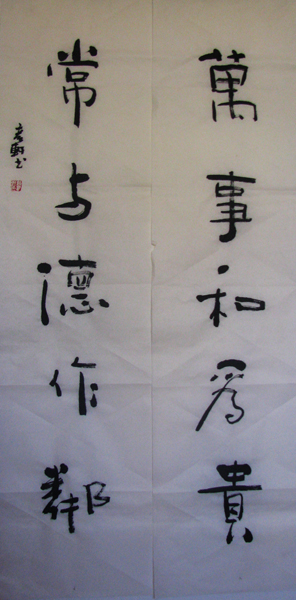 萬事和為貴
常与德作鄰